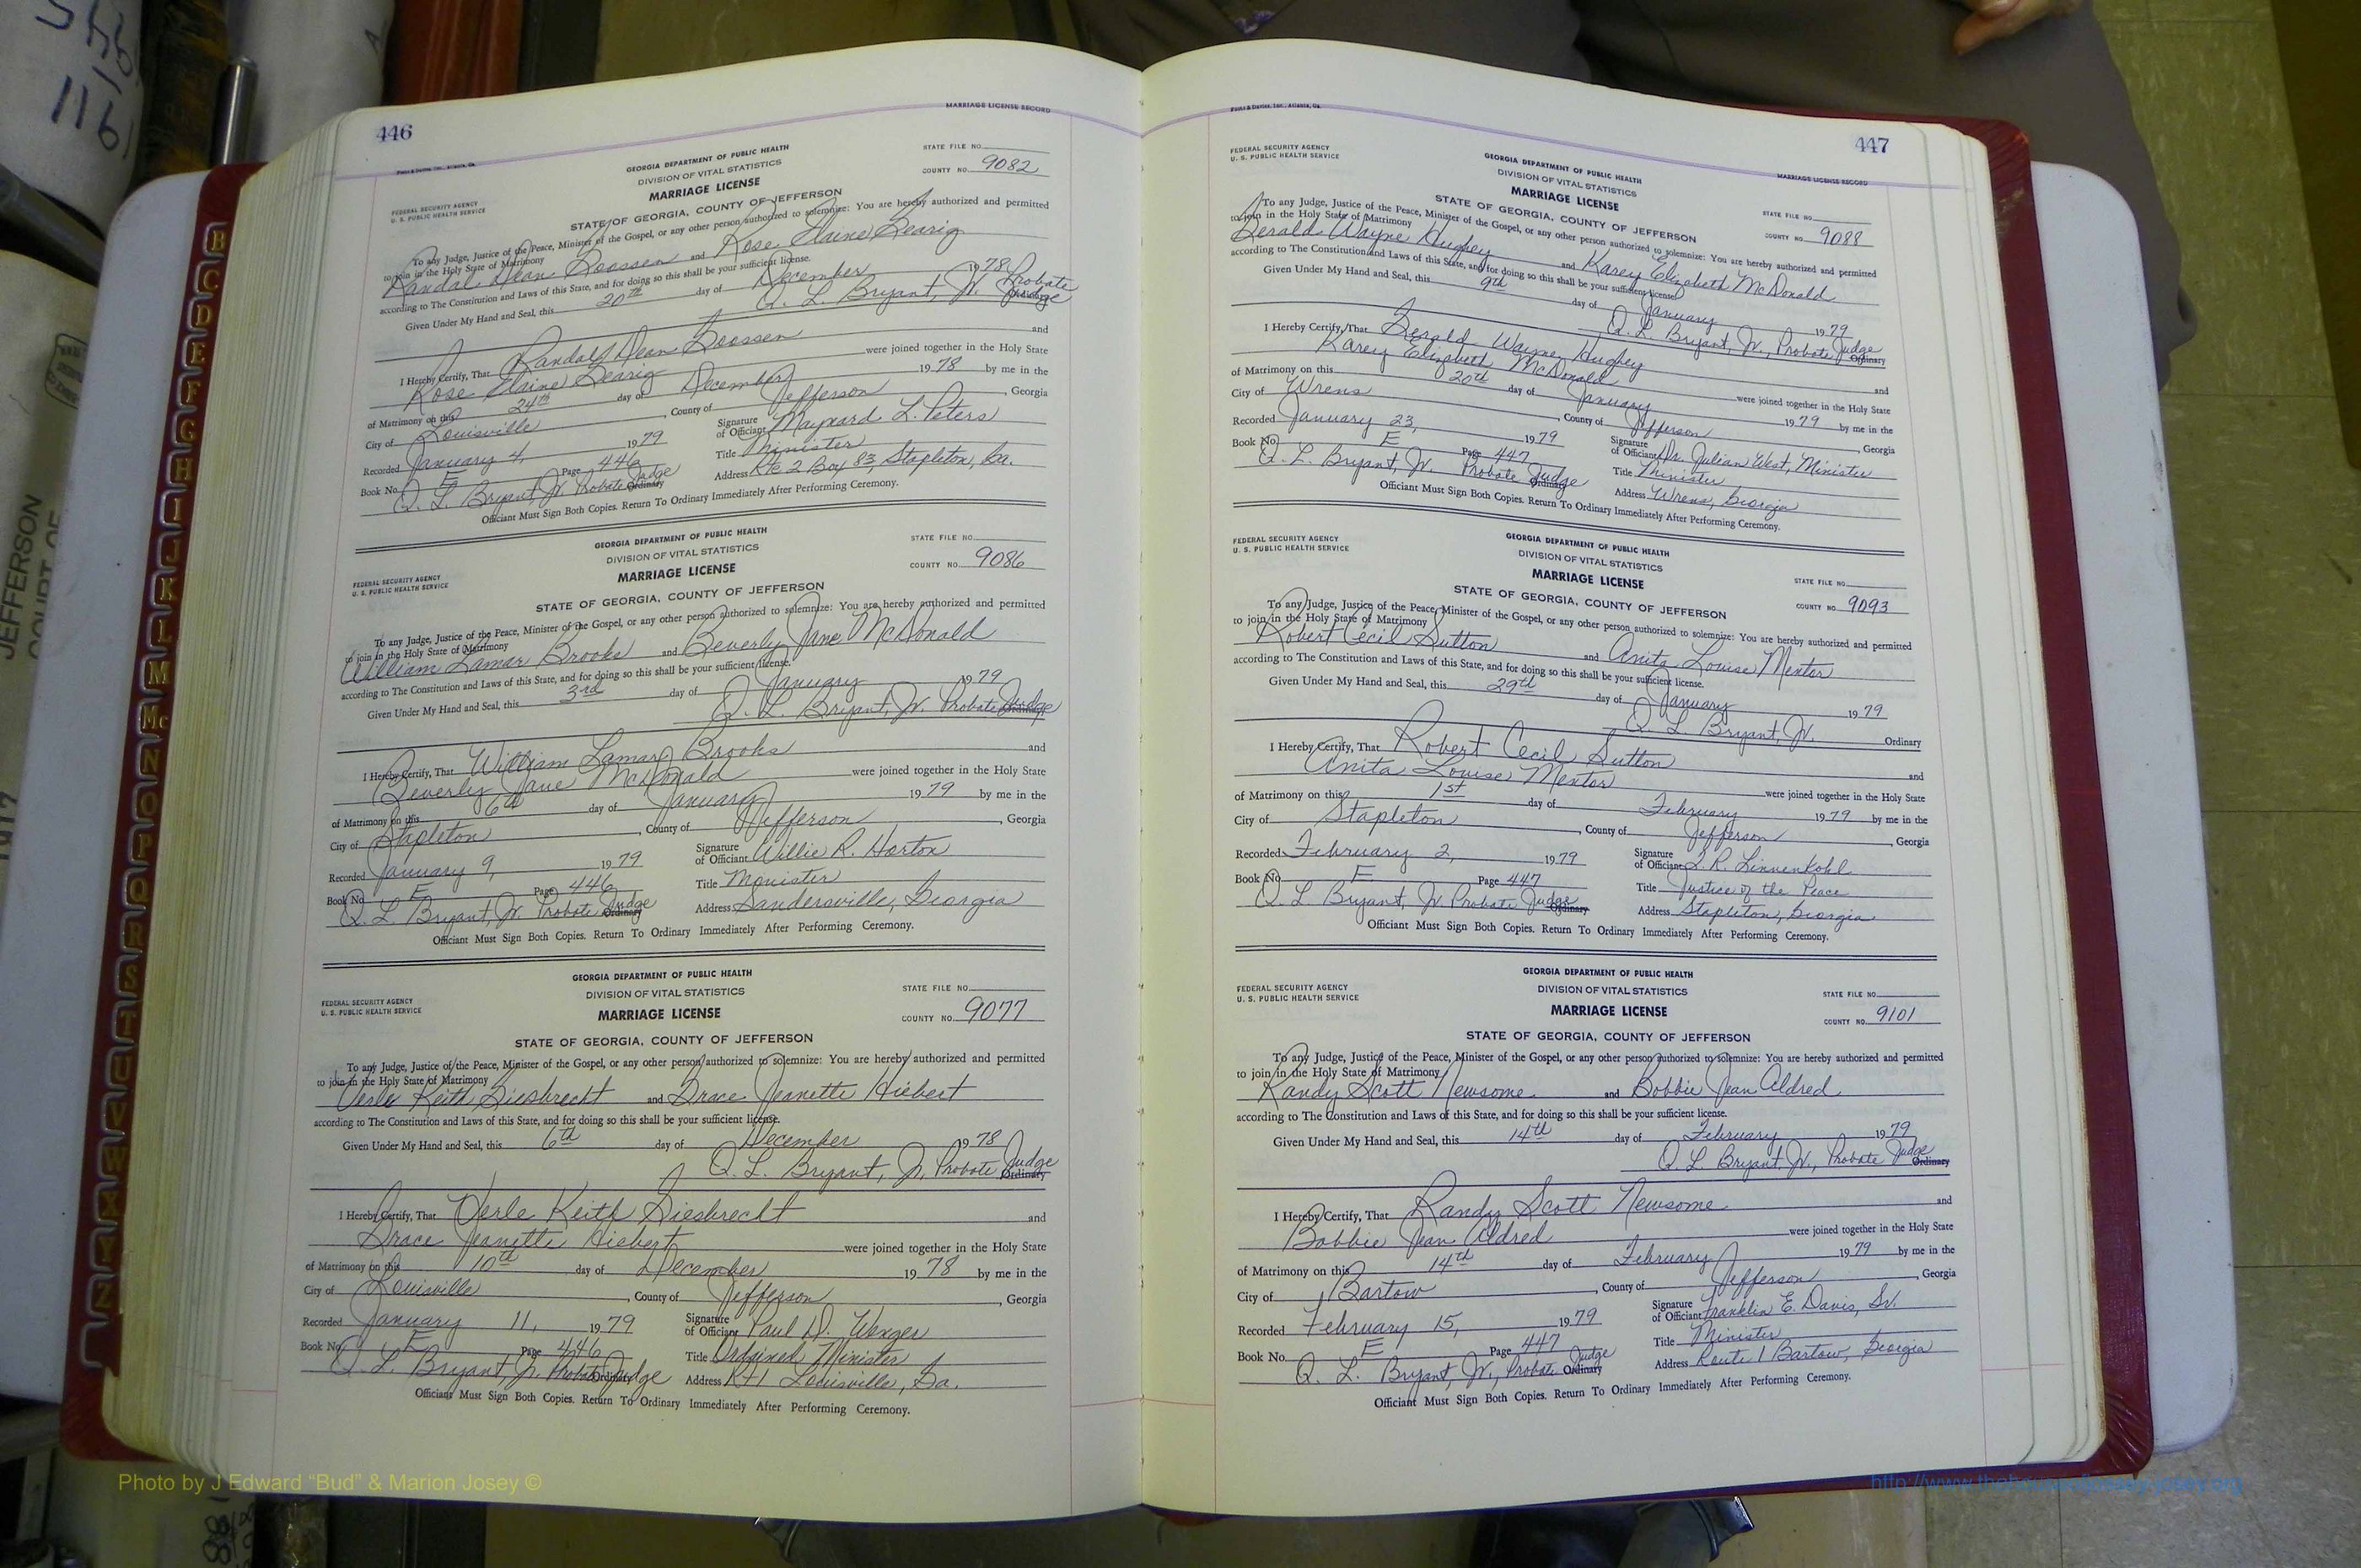 446
MARRIAGE LICENSE RECORD
GEORGIA DEPARTMENT OF PUBLIC HEALTH
DIVISION OF VITAL STATISTICS
MARRIAGE LICENSE
STATE FILE NO.
COUNTY NO. 9082
FEDERAL SECURITY AGENCY
U. S. PUBLIC HEALTH SERVICE
STATE OF GEORGIA, COUNTY OF JEFFERSON
To any Judge, Justice of the Peace, Minister of the Gospel, or any other person authorized to solemnize: You are hereby authorized and permitted
to join in the Holy State of Matrimony
Randal Dean Goossen and Rose Elaine Gearig
according to The Constitution and Laws of this State, and for doing so this shall be your sufficient license.
Given Under My Hand and Seal, this 20th day of December 1978
Q. L. Bryant, Jr. Probate Judge
I Hereby Certify, That Randall Dean Goossen and
Rose Elaine Gearig were joined together in the Holy State
of Matrimony on this 24th day of December 1978 by me in the
City of Louisville, County of Jefferson, Georgia
Recorded January 4, 1979
Signature of Officiant Maynard L. Peters
Book No. E Page 446
Title Minister
Q. L. Bryant, Jr. Probate Judge Ordinary
Address Rte 2 Box 83, Stapleton, Ga.
Officiant Must Sign Both Copies. Return To Ordinary Immediately After Performing Ceremony.
GEORGIA DEPARTMENT OF PUBLIC HEALTH
DIVISION OF VITAL STATISTICS
MARRIAGE LICENSE
STATE FILE NO.
COUNTY NO. 9086
FEDERAL SECURITY AGENCY
U. S. PUBLIC HEALTH SERVICE
STATE OF GEORGIA, COUNTY OF JEFFERSON
To any Judge, Justice of the Peace, Minister of the Gospel, or any other person authorized to solemnize: You are hereby authorized and permitted
to join in the Holy State of Matrimony
William Lamar Brooks and Beverly Jane McDonald
according to The Constitution and Laws of this State, and for doing so this shall be your sufficient license.
Given Under My Hand and Seal, this 3rd day of January 1979
Q. L. Bryant, Jr. Probate Judge
I Hereby Certify, That William Lamar Brooks and
Beverly Jane McDonald were joined together in the Holy State
of Matrimony on this 6th day of January 1979 by me in the
City of Stapleton, County of Jefferson, Georgia
Recorded January 9, 1979
Signature of Officiant Willie R. Horton
Book No. E Page 446
Title Minister
Q. L. Bryant, Jr. Probate Judge Ordinary
Address Sandersville, Georgia
Officiant Must Sign Both Copies. Return To Ordinary Immediately After Performing Ceremony.
GEORGIA DEPARTMENT OF PUBLIC HEALTH
DIVISION OF VITAL STATISTICS
MARRIAGE LICENSE
STATE FILE NO.
COUNTY NO. 9077
FEDERAL SECURITY AGENCY
U. S. PUBLIC HEALTH SERVICE
STATE OF GEORGIA, COUNTY OF JEFFERSON
To any Judge, Justice of the Peace, Minister of the Gospel, or any other person authorized to solemnize: You are hereby authorized and permitted
to join in the Holy State of Matrimony
Verle Keith Giesbrecht and Grace Jeanette Hiebert
according to The Constitution and Laws of this State, and for doing so this shall be your sufficient license.
Given Under My Hand and Seal, this 6th day of December 1978
Q. L. Bryant, Jr. Probate Judge Ordinary
I Hereby Certify, That Verle Keith Giesbrecht and
Grace Jeanette Hiebert were joined together in the Holy State
of Matrimony on this 10th day of December 1978 by me in the
City of Louisville, County of Jefferson, Georgia
Recorded January 11, 1979
Signature of Officiant Paul D. Wenger
Book No. E Page 446
Title Ordained Minister
Q. L. Bryant, Jr. Probate Judge Ordinary
Address Rt 1 Louisville, Ga.
Officiant Must Sign Both Copies. Return To Ordinary Immediately After Performing Ceremony.
447
MARRIAGE LICENSE RECORD
FEDERAL SECURITY AGENCY
U. S. PUBLIC HEALTH SERVICE
GEORGIA DEPARTMENT OF PUBLIC HEALTH
DIVISION OF VITAL STATISTICS
MARRIAGE LICENSE
STATE FILE NO.
COUNTY NO. 9088
STATE OF GEORGIA, COUNTY OF JEFFERSON
To any Judge, Justice of the Peace, Minister of the Gospel, or any other person authorized to solemnize: You are hereby authorized and permitted
to join in the Holy State of Matrimony
Gerald Wayne Hughey and Karey Elizabeth McDonald
according to The Constitution and Laws of this State, and for doing so this shall be your sufficient license.
Given Under My Hand and Seal, this 9th day of January 1979
Q. L. Bryant, Jr., Probate Judge Ordinary
I Hereby Certify, That Gerald Wayne Hughey and
Karey Elizabeth McDonald were joined together in the Holy State
of Matrimony on this 20th day of January 1979 by me in the
City of Wrens, County of Jefferson, Georgia
Recorded January 23, 1979
Signature of Officiant Dr. Julian West, Minister
Book No. E Page 447
Title Minister
Q. L. Bryant, Jr. Probate Judge Ordinary
Address Wrens, Georgia
Officiant Must Sign Both Copies. Return To Ordinary Immediately After Performing Ceremony.
FEDERAL SECURITY AGENCY
U. S. PUBLIC HEALTH SERVICE
GEORGIA DEPARTMENT OF PUBLIC HEALTH
DIVISION OF VITAL STATISTICS
MARRIAGE LICENSE
STATE FILE NO.
COUNTY NO. 9093
STATE OF GEORGIA, COUNTY OF JEFFERSON
To any Judge, Justice of the Peace, Minister of the Gospel, or any other person authorized to solemnize: You are hereby authorized and permitted
to join in the Holy State of Matrimony
Robert Cecil Sutton and Anita Louise Mentor
according to The Constitution and Laws of this State, and for doing so this shall be your sufficient license.
Given Under My Hand and Seal, this 29th day of January 1979
Q. L. Bryant, Jr. Ordinary
I Hereby Certify, That Robert Cecil Sutton and
Anita Louise Mentor were joined together in the Holy State
of Matrimony on this 1st day of February 1979 by me in the
City of Stapleton, County of Jefferson, Georgia
Recorded February 2, 1979
Signature of Officiant R. Linnenkohl
Book No. E Page 447
Title Justice of the Peace
Q. L. Bryant, Jr Probate Judge Ordinary
Address Stapleton, Georgia
Officiant Must Sign Both Copies. Return To Ordinary Immediately After Performing Ceremony.
FEDERAL SECURITY AGENCY
U. S. PUBLIC HEALTH SERVICE
GEORGIA DEPARTMENT OF PUBLIC HEALTH
DIVISION OF VITAL STATISTICS
MARRIAGE LICENSE
STATE FILE NO.
COUNTY NO. 9101
STATE OF GEORGIA, COUNTY OF JEFFERSON
To any Judge, Justice of the Peace, Minister of the Gospel, or any other person authorized to solemnize: You are hereby authorized and permitted
to join in the Holy State of Matrimony
Randy Scott Newsome and Bobbie Jean Aldred
according to The Constitution and Laws of this State, and for doing so this shall be your sufficient license.
Given Under My Hand and Seal, this 14th day of February 1979
Q. L. Bryant, Jr., Probate Judge Ordinary
I Hereby Certify, That Randy Scott Newsome and
Bobbie Jean Aldred were joined together in the Holy State
of Matrimony on this 14th day of February 1979 by me in the
City of Bartow, County of Jefferson, Georgia
Recorded February 15, 1979
Signature of Officiant Franklin E. Davis, Sr.
Book No. E Page 447
Title Minister
Q. L. Bryant, Jr., Probate Judge Ordinary
Address Route 1 Bartow, Georgia
Officiant Must Sign Both Copies. Return To Ordinary Immediately After Performing Ceremony.
B
C
D
E
F
G
H
I
J
K
L
M
Mc
N
O
P
Q
R
S
T
U
V
W
X
Y
Z
JEFFERSON
Photo by J Edward “Bud” & Marion Josey ©